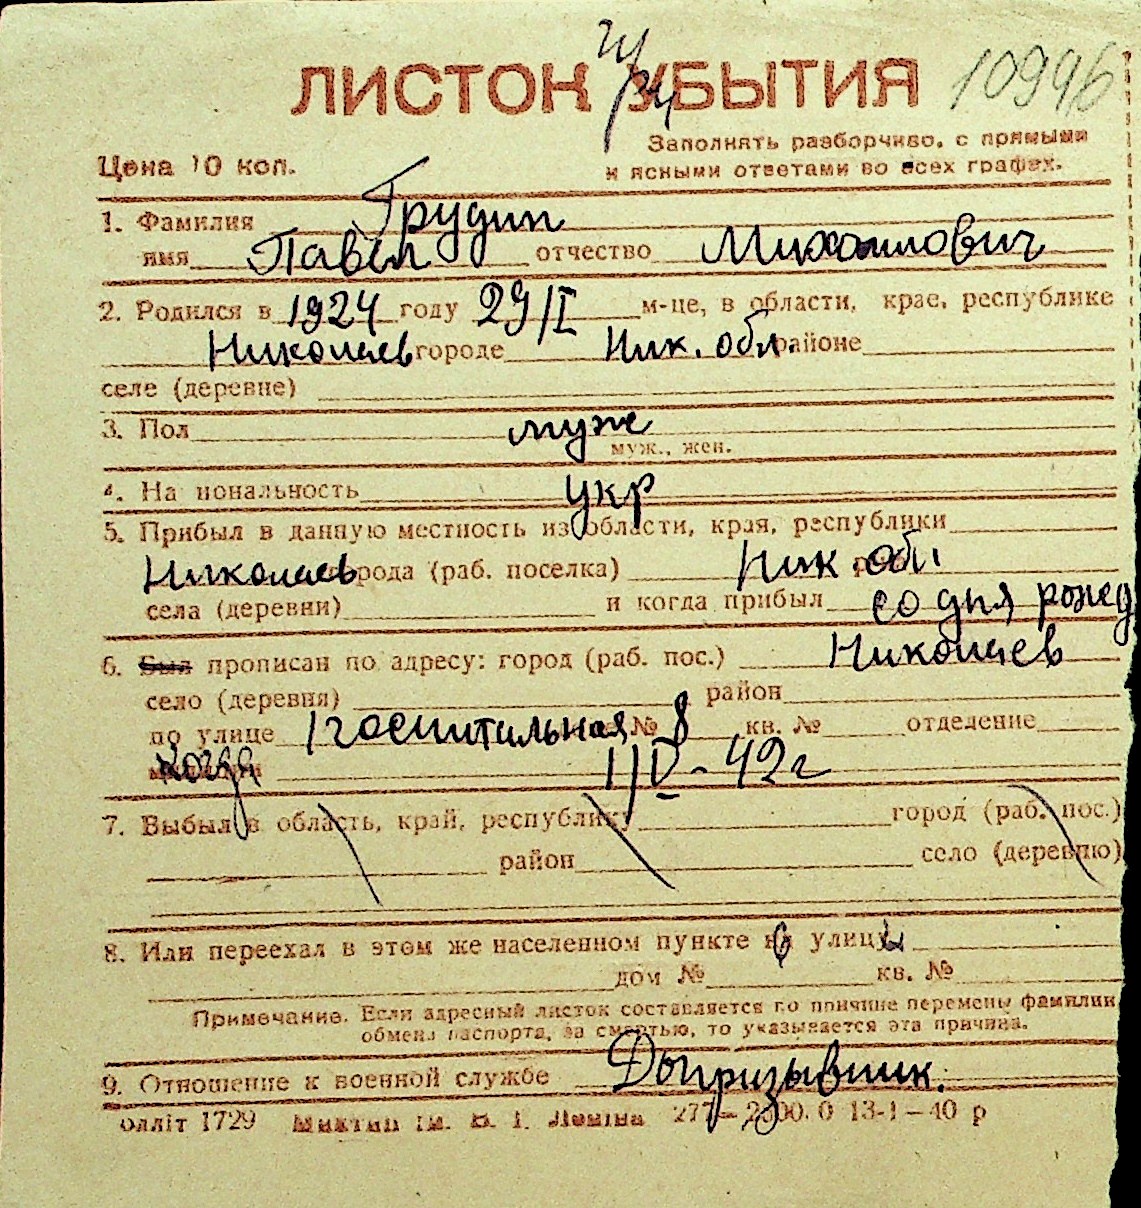 ЛИСТОК УБЫТИЯ 10996
Заполнять разборчиво, с прямыми
Цена 10 коп. и ясными ответами во всех графах.
1. Фамилия Грудип
имя Павел отчество Михаилович
2. Родился в 1924 году 29/I м-це, в области, крае, республике
Николаев городе Ник. обл. районе
селе (деревне)
3. Пол муж
муж., жен.
4. Национальность укр
5. Прибыл в данную местность из области, края, республики
Николаев города (раб. поселка) Ник обл
села (деревни) и когда прибыл со дня рожд
6. Был прописан по адресу: город (раб. пос.) Николаев
село (деревня) район
по улице 1 госпитальная № 8 кв. № отделение
когда 1/V-42г
7. Выбыл в область, край, республику город (раб. пос.)
район село (деревню)
8. Или переехал в этом же населенном пункте на улицу
дом № кв. №
Примечание. Если адресный листок составляется по причине перемены фамилии
обмена паспорта, за смертью, то указывается эта причина.
9. Отношение к военной службе Допризывник.
олліт 1729 ім. В. І. Леніна 277—2000.0 13-1—40 р